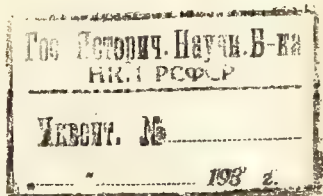 Гос. Историч. Научн. Б-ка
НК.П РСФСР
Инвент. №
" 193 г.